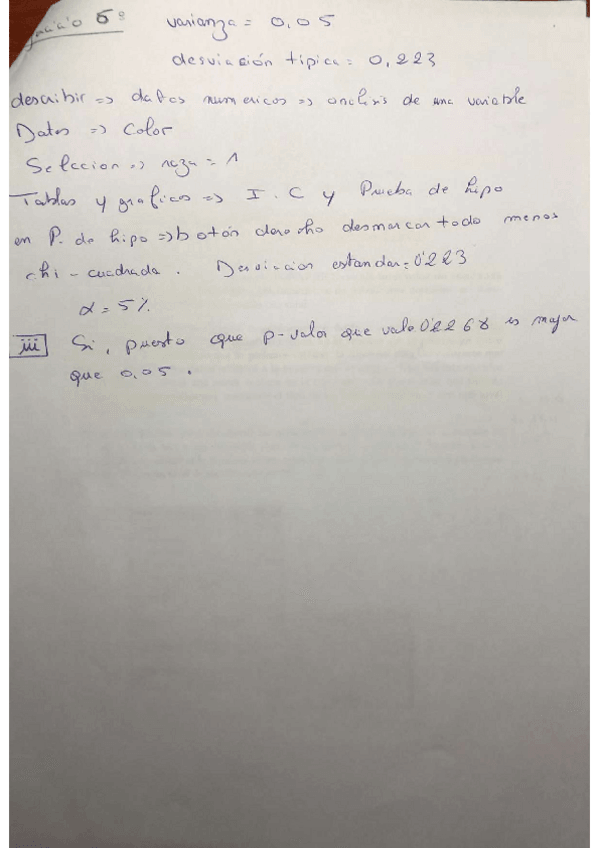 varianza = 0,05
desviación típica = 0,223
describir => datos numericos => analisis de una variable
Datos => Color
Seleccion => raza = 1
Tablas y graficos => I.C y Prueba de hipo
en P. de hipo => botón derecho desmarcar todo menos
chi-cuadrada. Desviacion estandar = 0'223
α = 5%
iii Si, puesto que p-valor que vale 0'2268 es mayor
que 0,05.